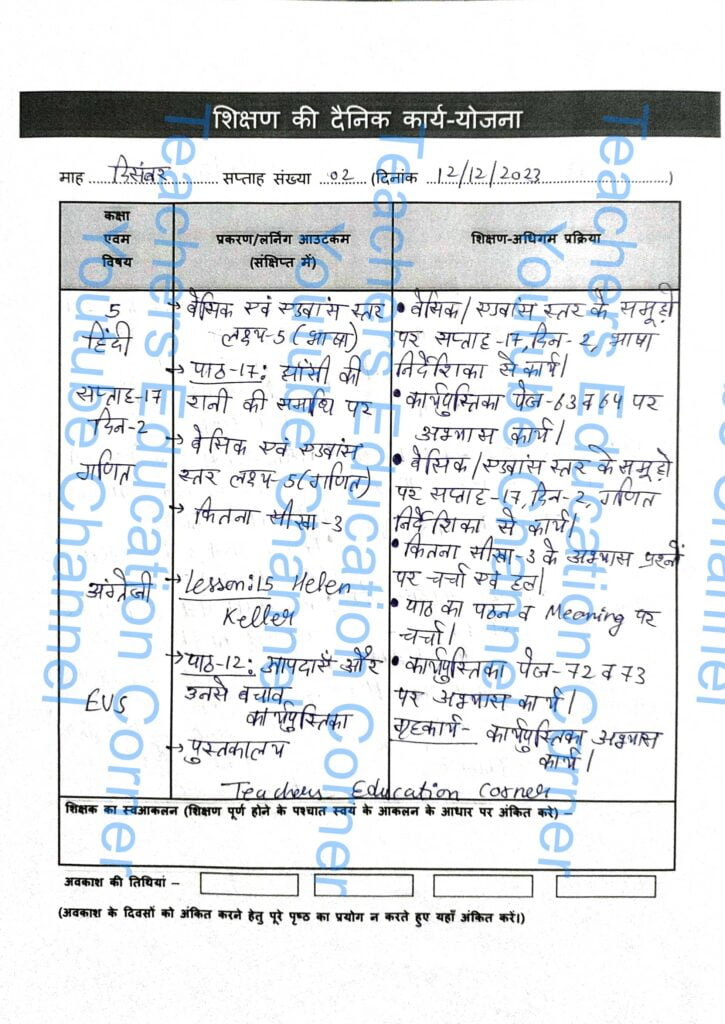 शिक्षण की दैनिक कार्य-योजना
माह दिसंबर सप्ताह संख्या 02 (दिनांक 12/12/2023)
कक्षा
एवम
विषय
प्रकरण/लर्निंग आउटकम
(संक्षिप्त में)
शिक्षण-अधिगम प्रक्रिया
5
हिंदी
सप्ताह-17
दिन-2
गणित
अंग्रेजी
EVS
→ बेसिक एवं एडवांस स्तर
लक्ष्य-5 (भाषा)
→ पाठ-17: झांसी की
रानी की समाधि पर
→ बेसिक एवं एडवांस
स्तर लक्ष्य-5 (गणित)
→ कितना सीखा-3
→ Lesson:15 Helen
Keller
→ पाठ-12: आपदाएँ और
उनसे बचाव
कार्यपुस्तिका
→ पुस्तकालय
• बेसिक/एडवांस स्तर के समूहों
पर सप्ताह-17, दिन-2, भाषा
निर्देशिका से कार्य।
• कार्यपुस्तिका पेज-63 व 64 पर
अभ्यास कार्य।
• बेसिक/एडवांस स्तर के समूहों
पर सप्ताह-17, दिन-2, गणित
निर्देशिका से कार्य।
• कितना सीखा-3 के अभ्यास प्रश्नों
पर चर्चा एवं हल।
• पाठ का पठन व Meaning पर
चर्चा।
• कार्यपुस्तिका पेज-72 व 73
पर अभ्यास कार्य।
गृहकार्य- कार्यपुस्तिका अभ्यास
कार्य।
Teachers Education Corner
शिक्षक का स्वआकलन (शिक्षण पूर्ण होने के पश्चात स्वयं के आकलन के आधार पर अंकित करें) –
अवकाश की तिथियां –
(अवकाश के दिवसों को अंकित करने हेतु पूरे पृष्ठ का प्रयोग न करते हुए यहाँ अंकित करें।)
Teachers Education Corner
Youtube Channel
Teachers Education Corner
Youtube Channel
Teachers Education Corner
Youtube Channel